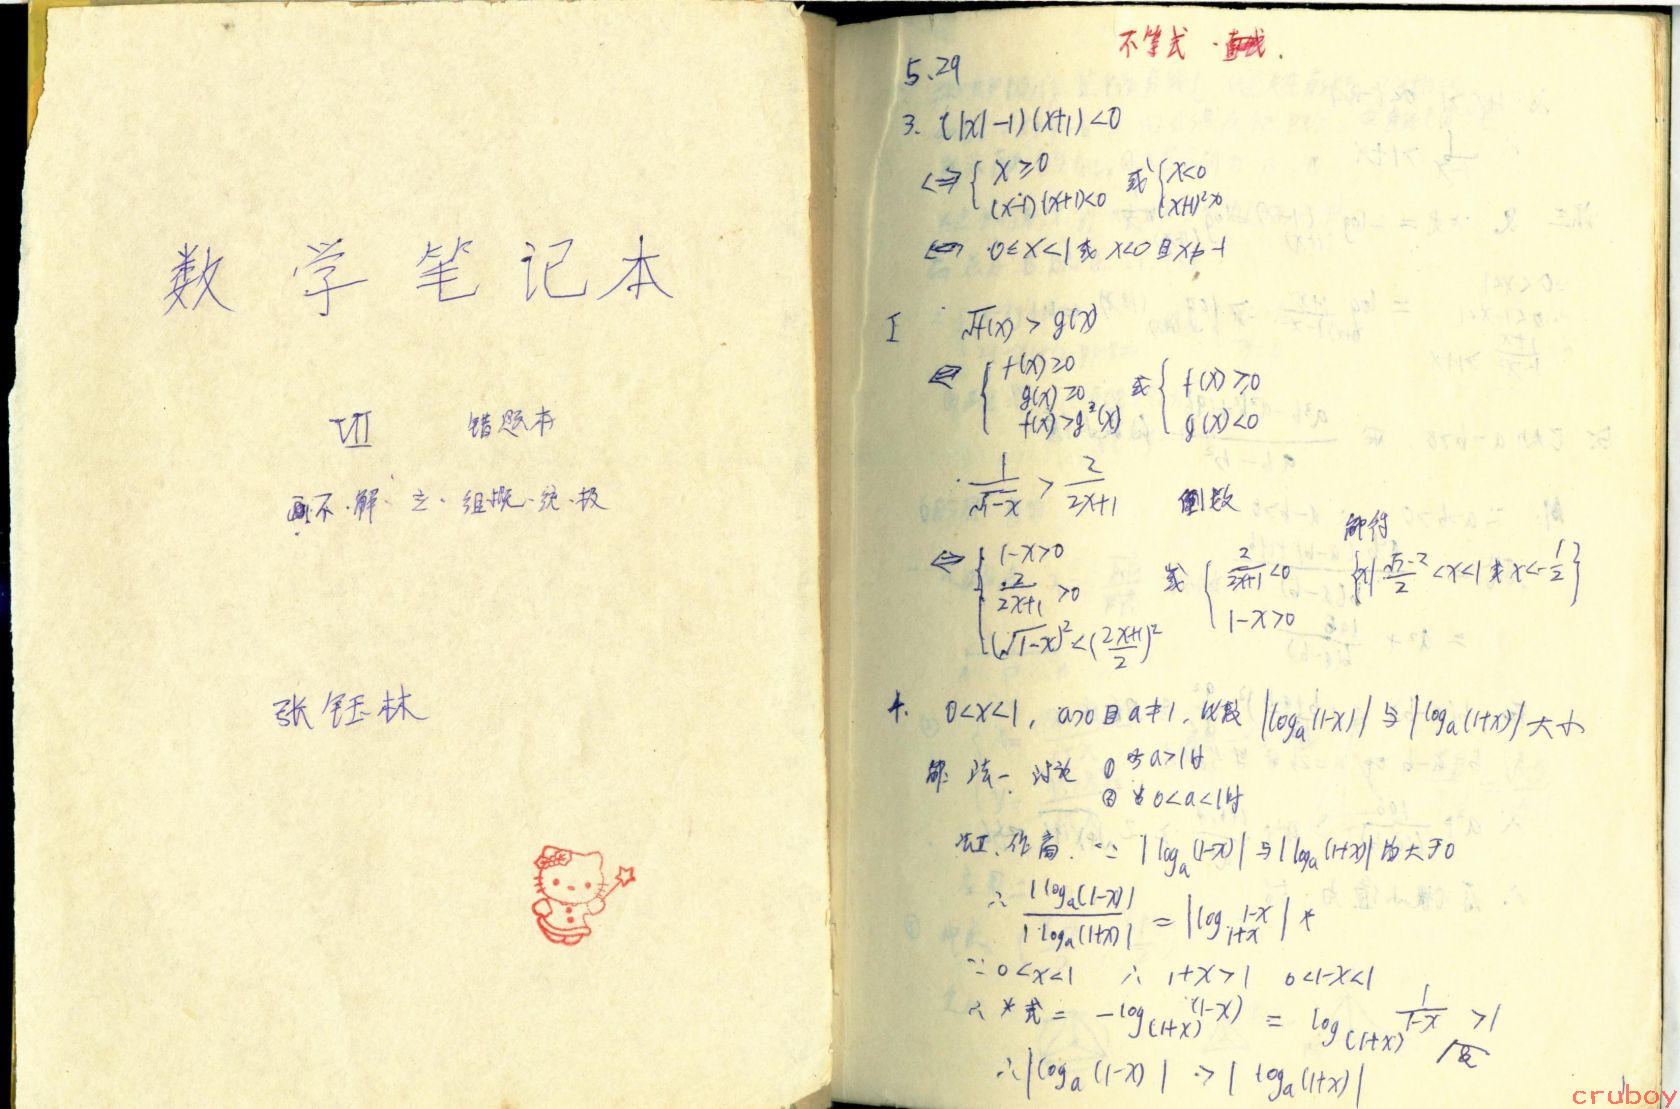 数学笔记本
VII 错题本
不·解·之·组概·统·极
张钰林
不等式·直线.
5.29
3. (|x|-1)(x+1)<0
⇔ { x≥0 (x-1)(x+1)<0 或 { x<0 (x+1)²>0
⇔ 0≤x<1 或 x<0 且 x≠-1
I √f(x) > g(x)
⇔ { f(x)≥0 g(x)≥0 f(x)>g²(x) 或 { f(x)≥0 g(x)<0
1/√1-x > 2/2x+1 倒数
解得
⇔ { 1-x>0 2/2x+1 >0 (√1-x)²<(2x+1/2)² 或 { 2/2x+1<0 1-x>0 {x| √3-2/2<x<1 或 x<-1/2}
4. 0<x<1, a>0 且 a≠1, 比较 |logₐ(1-x)| 与 |logₐ(1+x)| 大小
解: 法一. 讨论 ① 当 a>1时
② 当 0<a<1时
法II. 作商. ∵ |logₐ(1-x)| 与 |logₐ(1+x)| 均大于0
∴ |logₐ(1-x)| / |logₐ(1+x)| = |log₁₊ₓ 1-x| *
∵ 0<x<1 ∴ 1+x>1 0<1-x<1
∴ *式 = -log(1+x) (1-x) = log(1+x) 1/1-x >1
∴ |logₐ(1-x)| > |logₐ(1+x)|
cruboy